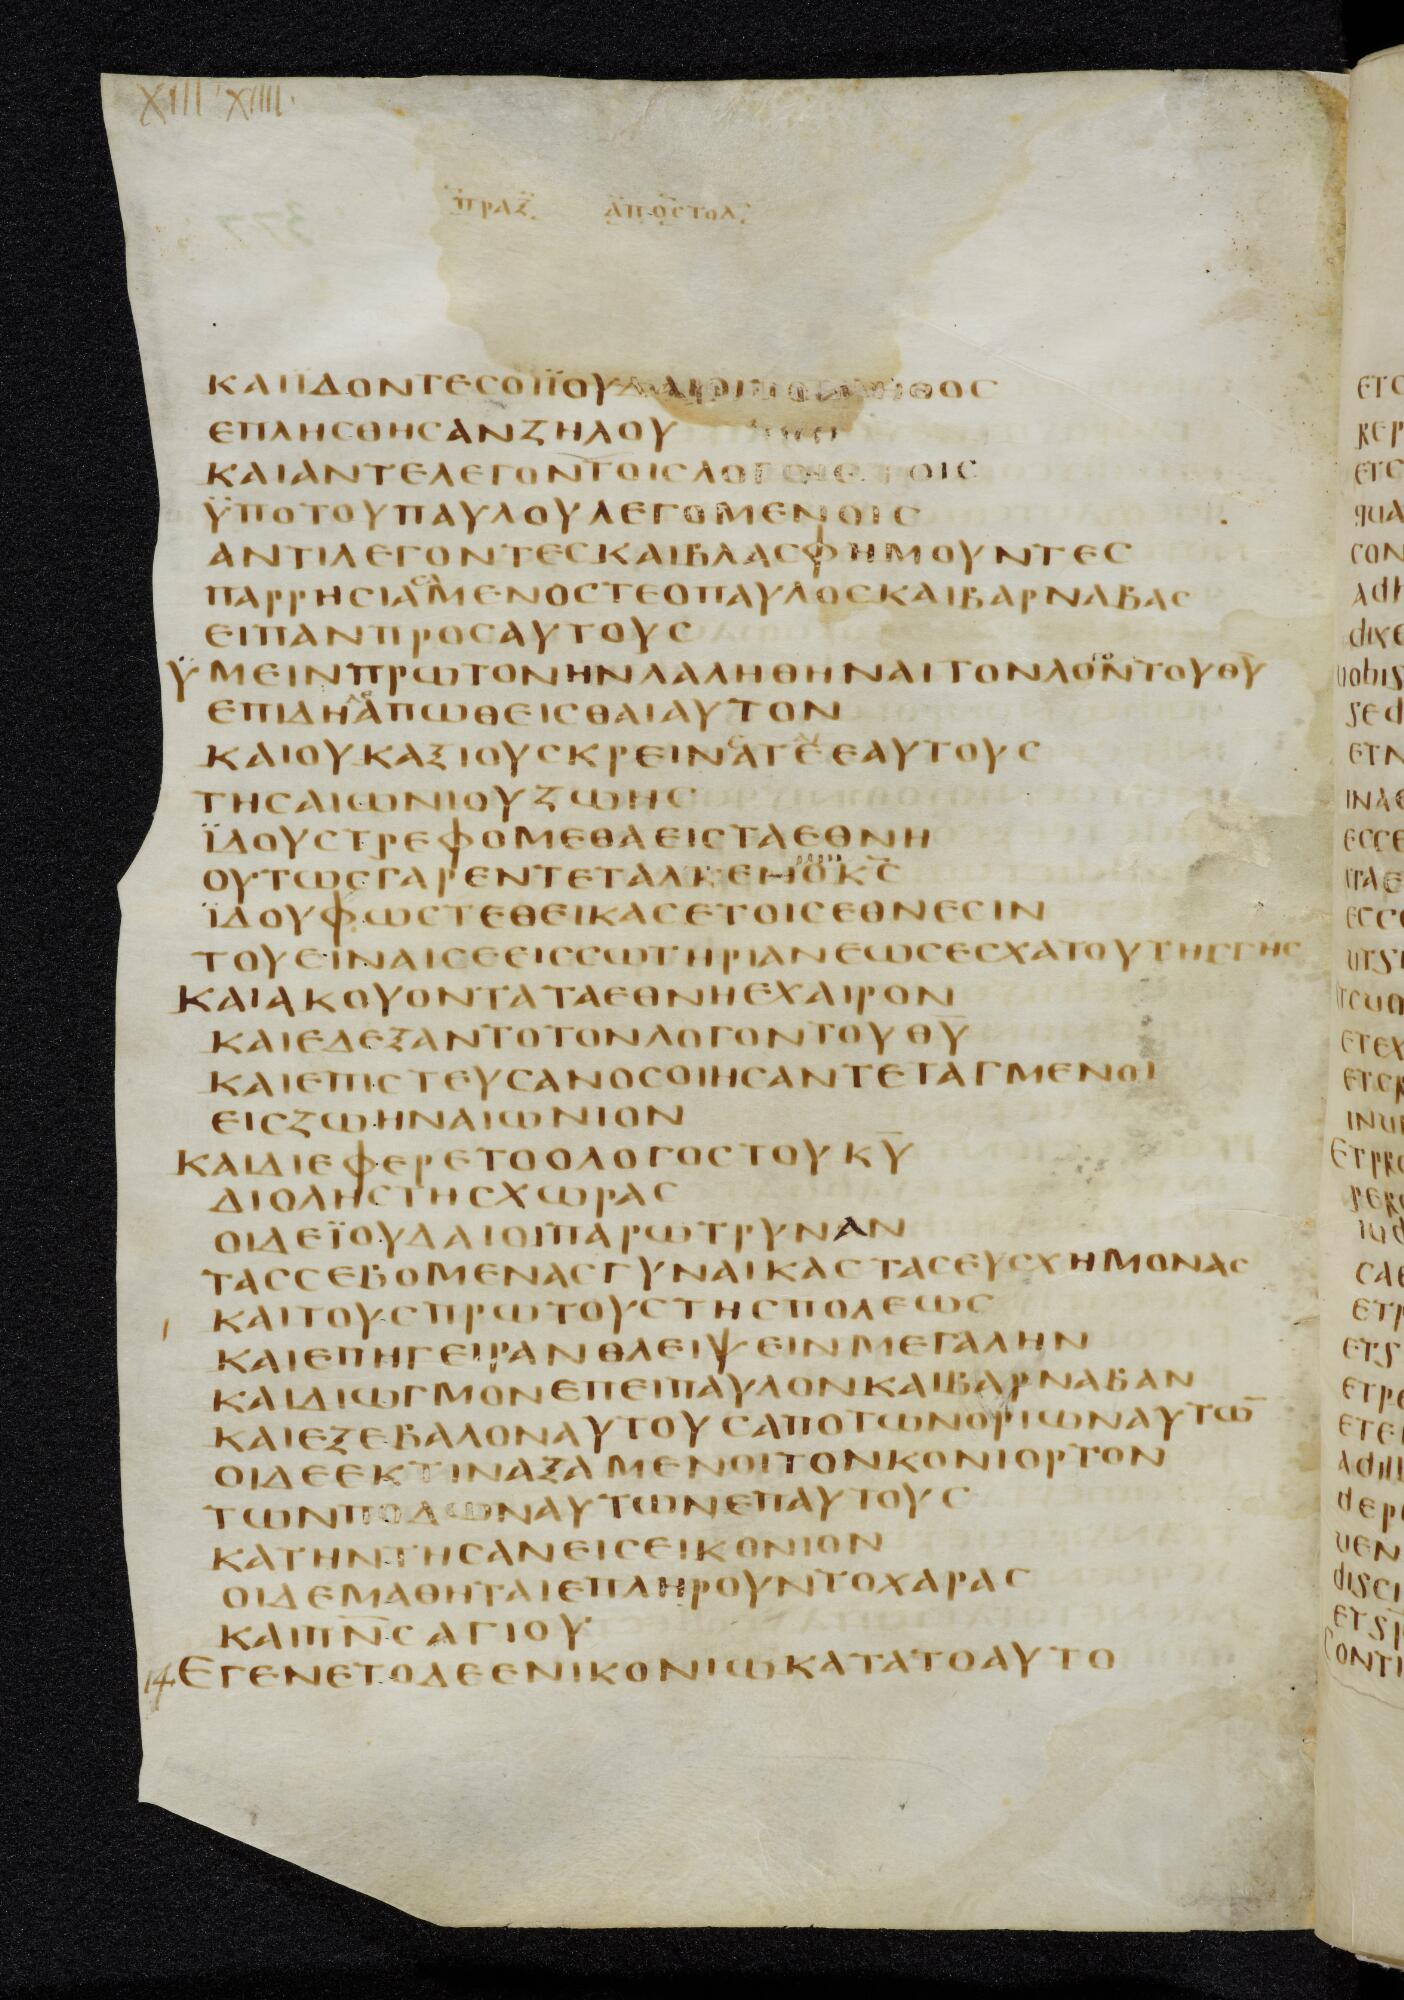 XIII XIIII
ΠΡΑΞ ΑΠΟΣΤΟΛ
ΚΑΙ ΪΔΟΝΤΕϹ ΟΙ ΪΟΥΔΑΙΟΙ ΤΟ ΠΛΗΘΟϹ
ΕΠΛΗϹΘΗϹΑΝ ΖΗΛΟΥ
ΚΑΙ ΑΝΤΕΛΕΓΟΝ ΤΟΙϹ ΛΟΓΟΙϹ ΤΟΙϹ
ΫΠΟ ΤΟΥ ΠΑΥΛΟΥ ΛΕΓΟΜΕΝΟΙϹ
ΑΝΤΙΛΕΓΟΝΤΕϹ ΚΑΙ ΒΛΑϹΦΗΜΟΥΝΤΕϹ
ΠΑΡΡΗϹΙΑϹΑΜΕΝΟϹ ΤΕ Ο ΠΑΥΛΟϹ ΚΑΙ ΒΑΡΝΑΒΑϹ
ΕΙΠΑΝ ΠΡΟϹ ΑΥΤΟΥϹ
ΫΜΕΙΝ ΠΡΩΤΟΝ ΗΝ ΛΑΛΗΘΗΝΑΙ ΤΟΝ ΛΟΓΟΝ ΤΟΥ ΘΥ̅
ΕΠΙΔΗ ΔΕ ΑΠΩΘΕΙϹΘΑΙ ΑΥΤΟΝ
ΚΑΙ ΟΥΚ ΑΞΙΟΥϹ ΚΡΕΙΝΑΤΕ ΕΑΥΤΟΥϹ
ΤΗϹ ΑΙΩΝΙΟΥ ΖΩΗϹ
ΪΔΟΥ ϹΤΡΕΦΟΜΕΘΑ ΕΙϹ ΤΑ ΕΘΝΗ
ΟΥΤΩϹ ΓΑΡ ΕΝΤΕΤΑΛΚΕΝ Ο ΚϹ̅
ΪΔΟΥ ΦΩϹ ΤΕΘΕΙΚΑ ϹΕ ΤΟΙϹ ΕΘΝΕϹΙΝ
ΤΟΥ ΕΙΝΑΙ ϹΕ ΕΙϹ ϹΩΤΗΡΙΑΝ ΕΩϹ ΕϹΧΑΤΟΥ ΤΗϹ ΓΗϹ
ΚΑΙ ΑΚΟΥΟΝΤΑ ΤΑ ΕΘΝΗ ΕΧΑΙΡΟΝ
ΚΑΙ ΕΔΕΞΑΝΤΟ ΤΟΝ ΛΟΓΟΝ ΤΟΥ ΘΥ̅
ΚΑΙ ΕΠΙϹΤΕΥϹΑΝ ΟϹΟΙ ΗϹΑΝ ΤΕΤΑΓΜΕΝΟΙ
ΕΙϹ ΖΩΗΝ ΑΙΩΝΙΟΝ
ΚΑΙ ΔΙΕΦΕΡΕΤΟ Ο ΛΟΓΟϹ ΤΟΥ ΚΥ̅
ΔΙ ΟΛΗϹ ΤΗϹ ΧΩΡΑϹ
ΟΙ ΔΕ ΪΟΥΔΑΙΟΙ ΠΑΡΩΤΡΥΝΑΝ
ΤΑϹ ϹΕΒΟΜΕΝΑϹ ΓΥΝΑΙΚΑϹ ΤΑϹ ΕΥϹΧΗΜΟΝΑϹ
ΚΑΙ ΤΟΥϹ ΠΡΩΤΟΥϹ ΤΗϹ ΠΟΛΕΩϹ
ΚΑΙ ΕΠΗΓΕΙΡΑΝ ΘΛΕΙΨΕΙΝ ΜΕΓΑΛΗΝ
ΚΑΙ ΔΙΩΓΜΟΝ ΕΠΕΙ ΠΑΥΛΟΝ ΚΑΙ ΒΑΡΝΑΒΑΝ
ΚΑΙ ΕΞΕΒΑΛΟΝ ΑΥΤΟΥϹ ΑΠΟ ΤΩΝ ΟΡΙΩΝ ΑΥΤΩ̅
ΟΙ ΔΕ ΕΚΤΙΝΑΞΑΜΕΝΟΙ ΤΟΝ ΚΟΝΙΟΡΤΟΝ
ΤΩΝ ΠΟΔΩΝ ΑΥΤΩΝ ΕΠ ΑΥΤΟΥϹ
ΚΑΤΗΝΤΗϹΑΝ ΕΙϹ ΕΙΚΟΝΙΟΝ
ΟΙ ΔΕ ΜΑΘΗΤΑΙ ΕΠΛΗΡΟΥΝΤΟ ΧΑΡΑϹ
ΚΑΙ ΠΝϹ̅ ΑΓΙΟΥ
14 ΕΓΕΝΕΤΟ ΔΕ ΕΝ ΙΚΟΝΙΩ ΚΑΤΑ ΤΟ ΑΥΤΟ